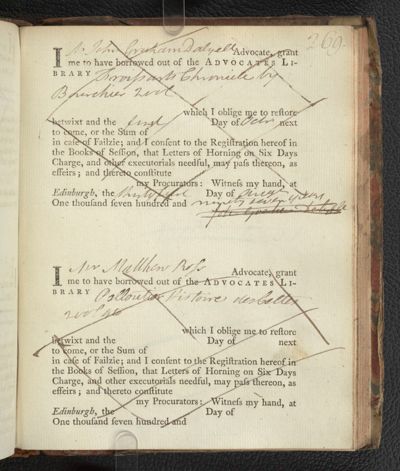 269.
I Mr John Graham Dalyell Advocate, grant
me to have borrowed out of the ADVOCATES LI-
BRARY Froissarts Chronicle by
Bourchier 2 vol
which I oblige me to reſtore
betwixt and the first Day of Octr. next
to come, or the Sum of
in caſe of Failzie; and I conſent to the Regiſtration hereof in
the Books of Seſſion, that Letters of Horning on Six Days
Charge, and other executorials needful, may paſs thereon, as
effeirs; and thereto conſtitute
my Procurators: Witneſs my hand, at
Edinburgh, the Day of
One thouſand ſeven hundred and ninety
I Mr Matthew Ross Advocate, grant
me to have borrowed out of the ADVOCATES LI-
BRARY Histoire des
2 vol 4to
which I oblige me to reſtore
betwixt and the Day of next
to come, or the Sum of
in caſe of Failzie; and I conſent to the Regiſtration hereof in
the Books of Seſſion, that Letters of Horning on Six Days
Charge, and other executorials needful, may paſs thereon, as
effeirs; and thereto conſtitute
my Procurators: Witneſs my hand, at
Edinburgh, the Day of
One thouſand ſeven hundred and